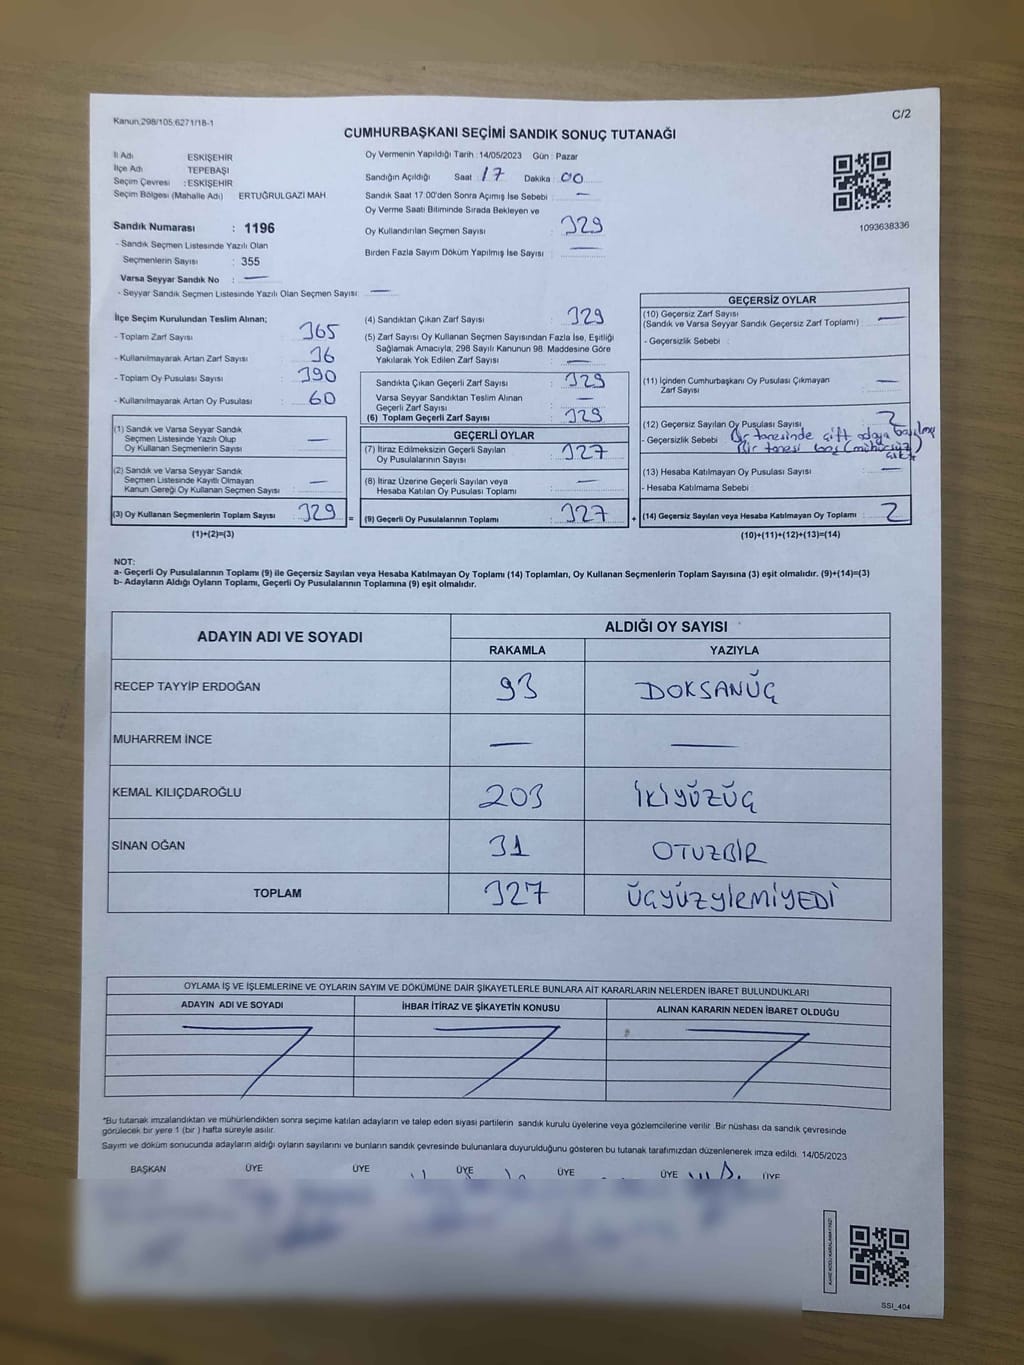 Kanun,298/105,6271/18-1
C/2
CUMHURBAŞKANI SEÇİMİ SANDIK SONUÇ TUTANAĞI
İl Adı ESKİŞEHİR
İlçe Adı TEPEBAŞI
Seçim Çevresi : ESKİŞEHİR
Seçim Bölgesi (Mahalle Adı) ERTUĞRULGAZİ MAH
Sandık Numarası : 1196
- Sandık Seçmen Listesinde Yazılı Olan
Seçmenlerin Sayısı : 355
Varsa Seyyar Sandık No : —
- Seyyar Sandık Seçmen Listesinde Yazılı Olan Seçmen Sayısı: —
Oy Vermenin Yapıldığı Tarih : 14/05/2023 Gün : Pazar
Sandığın Açıldığı Saat 17 Dakika 00
Sandık Saat 17:00'den Sonra Açımış İse Sebebi : —
Oy Verme Saati Bitiminde Sırada Bekleyen ve
Oy Kullandırılan Seçmen Sayısı : 329
Birden Fazla Sayım Döküm Yapılmış İse Sayısı : —
1093638336
İlçe Seçim Kurulundan Teslim Alınan;
- Toplam Zarf Sayısı : 365
- Kullanılmayarak Artan Zarf Sayısı : 36
- Toplam Oy Pusulası Sayısı : 390
- Kullanılmayarak Artan Oy Pusulası : 60
(1) Sandık ve Varsa Seyyar Sandık
Seçmen Listesinde Yazılı Olup
Oy Kullanan Seçmenlerin Sayısı : —
(2) Sandık ve Varsa Seyyar Sandık
Seçmen Listesinde Kayıtlı Olmayan
Kanun Gereği Oy Kullanan Seçmen Sayısı : —
(3) Oy Kullanan Seçmenlerin Toplam Sayısı : 329 =
(1)+(2)=(3)
(4) Sandıktan Çıkan Zarf Sayısı : 329
(5) Zarf Sayısı Oy Kullanan Seçmen Sayısından Fazla İse, Eşitliği
Sağlamak Amacıyla; 298 Sayılı Kanunun 98. Maddesine Göre
Yakılarak Yok Edilen Zarf Sayısı : —
Sandıkta Çıkan Geçerli Zarf Sayısı : 329
Varsa Seyyar Sandıktan Teslim Alınan
Geçerli Zarf Sayısı : —
(6) Toplam Geçerli Zarf Sayısı : 329
GEÇERLİ OYLAR
(7) İtiraz Edilmeksizin Geçerli Sayılan
Oy Pusulalarının Sayısı : 327
(8) İtiraz Üzerine Geçerli Sayılan veya
Hesaba Katılan Oy Pusulası Toplamı : —
(9) Geçerli Oy Pusulalarının Toplamı : 327 +
GEÇERSİZ OYLAR
(10) Geçersiz Zarf Sayısı : —
(Sandık ve Varsa Seyyar Sandık Geçersiz Zarf Toplamı)
- Geçersizlik Sebebi :
(11) İçinden Cumhurbaşkanı Oy Pusulası Çıkmayan
Zarf Sayısı : —
(12) Geçersiz Sayılan Oy Pusulası Sayısı : 2
- Geçersizlik Sebebi : Bir tanesinde çift adaya basılmış
Bir tanesi boş (mühürsüz)
çıktı
(13) Hesaba Katılmayan Oy Pusulası Sayısı : —
- Hesaba Katılmama Sebebi :
(14) Geçersiz Sayılan veya Hesaba Katılmayan Oy Toplamı : 2
(10)+(11)+(12)+(13)=(14)
NOT:
a- Geçerli Oy Pusulalarının Toplamı (9) ile Geçersiz Sayılan veya Hesaba Katılmayan Oy Toplamı (14) Toplamları, Oy Kullanan Seçmenlerin Toplam Sayısına (3) eşit olmalıdır. (9)+(14)=(3)
b- Adayların Aldığı Oyların Toplamı, Geçerli Oy Pusulalarının Toplamına (9) eşit olmalıdır.
ADAYIN ADI VE SOYADI ALDIĞI OY SAYISI
RAKAMLA YAZIYLA
RECEP TAYYİP ERDOĞAN 93 DOKSANÜÇ
MUHARREM İNCE — —
KEMAL KILIÇDAROĞLU 203 İKİYÜZÜÇ
SİNAN OĞAN 31 OTUZBİR
TOPLAM 327 ÜÇYÜZYİRMİYEDİ
OYLAMA İŞ VE İŞLEMLERİNE VE OYLARIN SAYIM VE DÖKÜMÜNE DAİR ŞİKAYETLERLE BUNLARA AİT KARARLARIN NELERDEN İBARET BULUNDUKLARI
ADAYIN ADI VE SOYADI İHBAR İTİRAZ VE ŞİKAYETİN KONUSU ALINAN KARARIN NEDEN İBARET OLDUĞU
*Bu tutanak imzalandıktan ve mühürlendikten sonra seçime katılan adayların ve talep eden siyasi partilerin sandık kurulu üyelerine veya gözlemcilerine verilir. Bir nüshası da sandık çevresinde
görülecek bir yere 1 (bir ) hafta süreyle asılır.
Sayım ve döküm sonucunda adayların aldığı oyların sayılarını ve bunların sandık çevresinde bulunanlara duyurulduğunu gösteren bu tutanak tarafımızdan düzenlenerek imza edildi. 14/05/2023
BAŞKAN ÜYE ÜYE ÜYE ÜYE ÜYE ÜYE
SSI_404